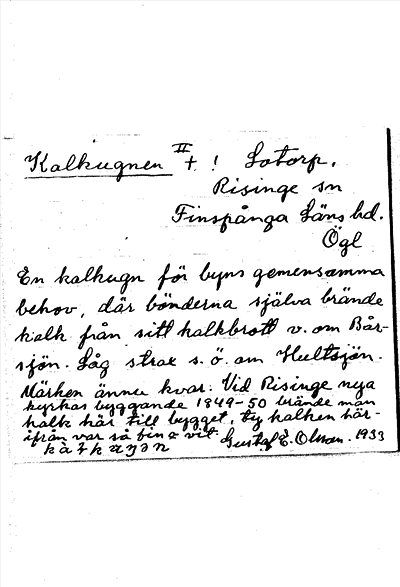 Kalkugnen II + ! Lotorp.
Risinge sn
Finspånga Läns hd.
Ögl
En kalkugn för byns gemensamma
behov, där bönderna själva brände
kalk från sitt kalkbrott v. om Bår-
sjön. Låg strax s. ö. om Hultsjön.
Märken ännu kvar. Vid Risinge nya
kyrkas byggande 1849-50 brände man
kalk här till bygget, ty kalken här-
ifrån var så fin o vit. Gustaf E. Olsson. 1933